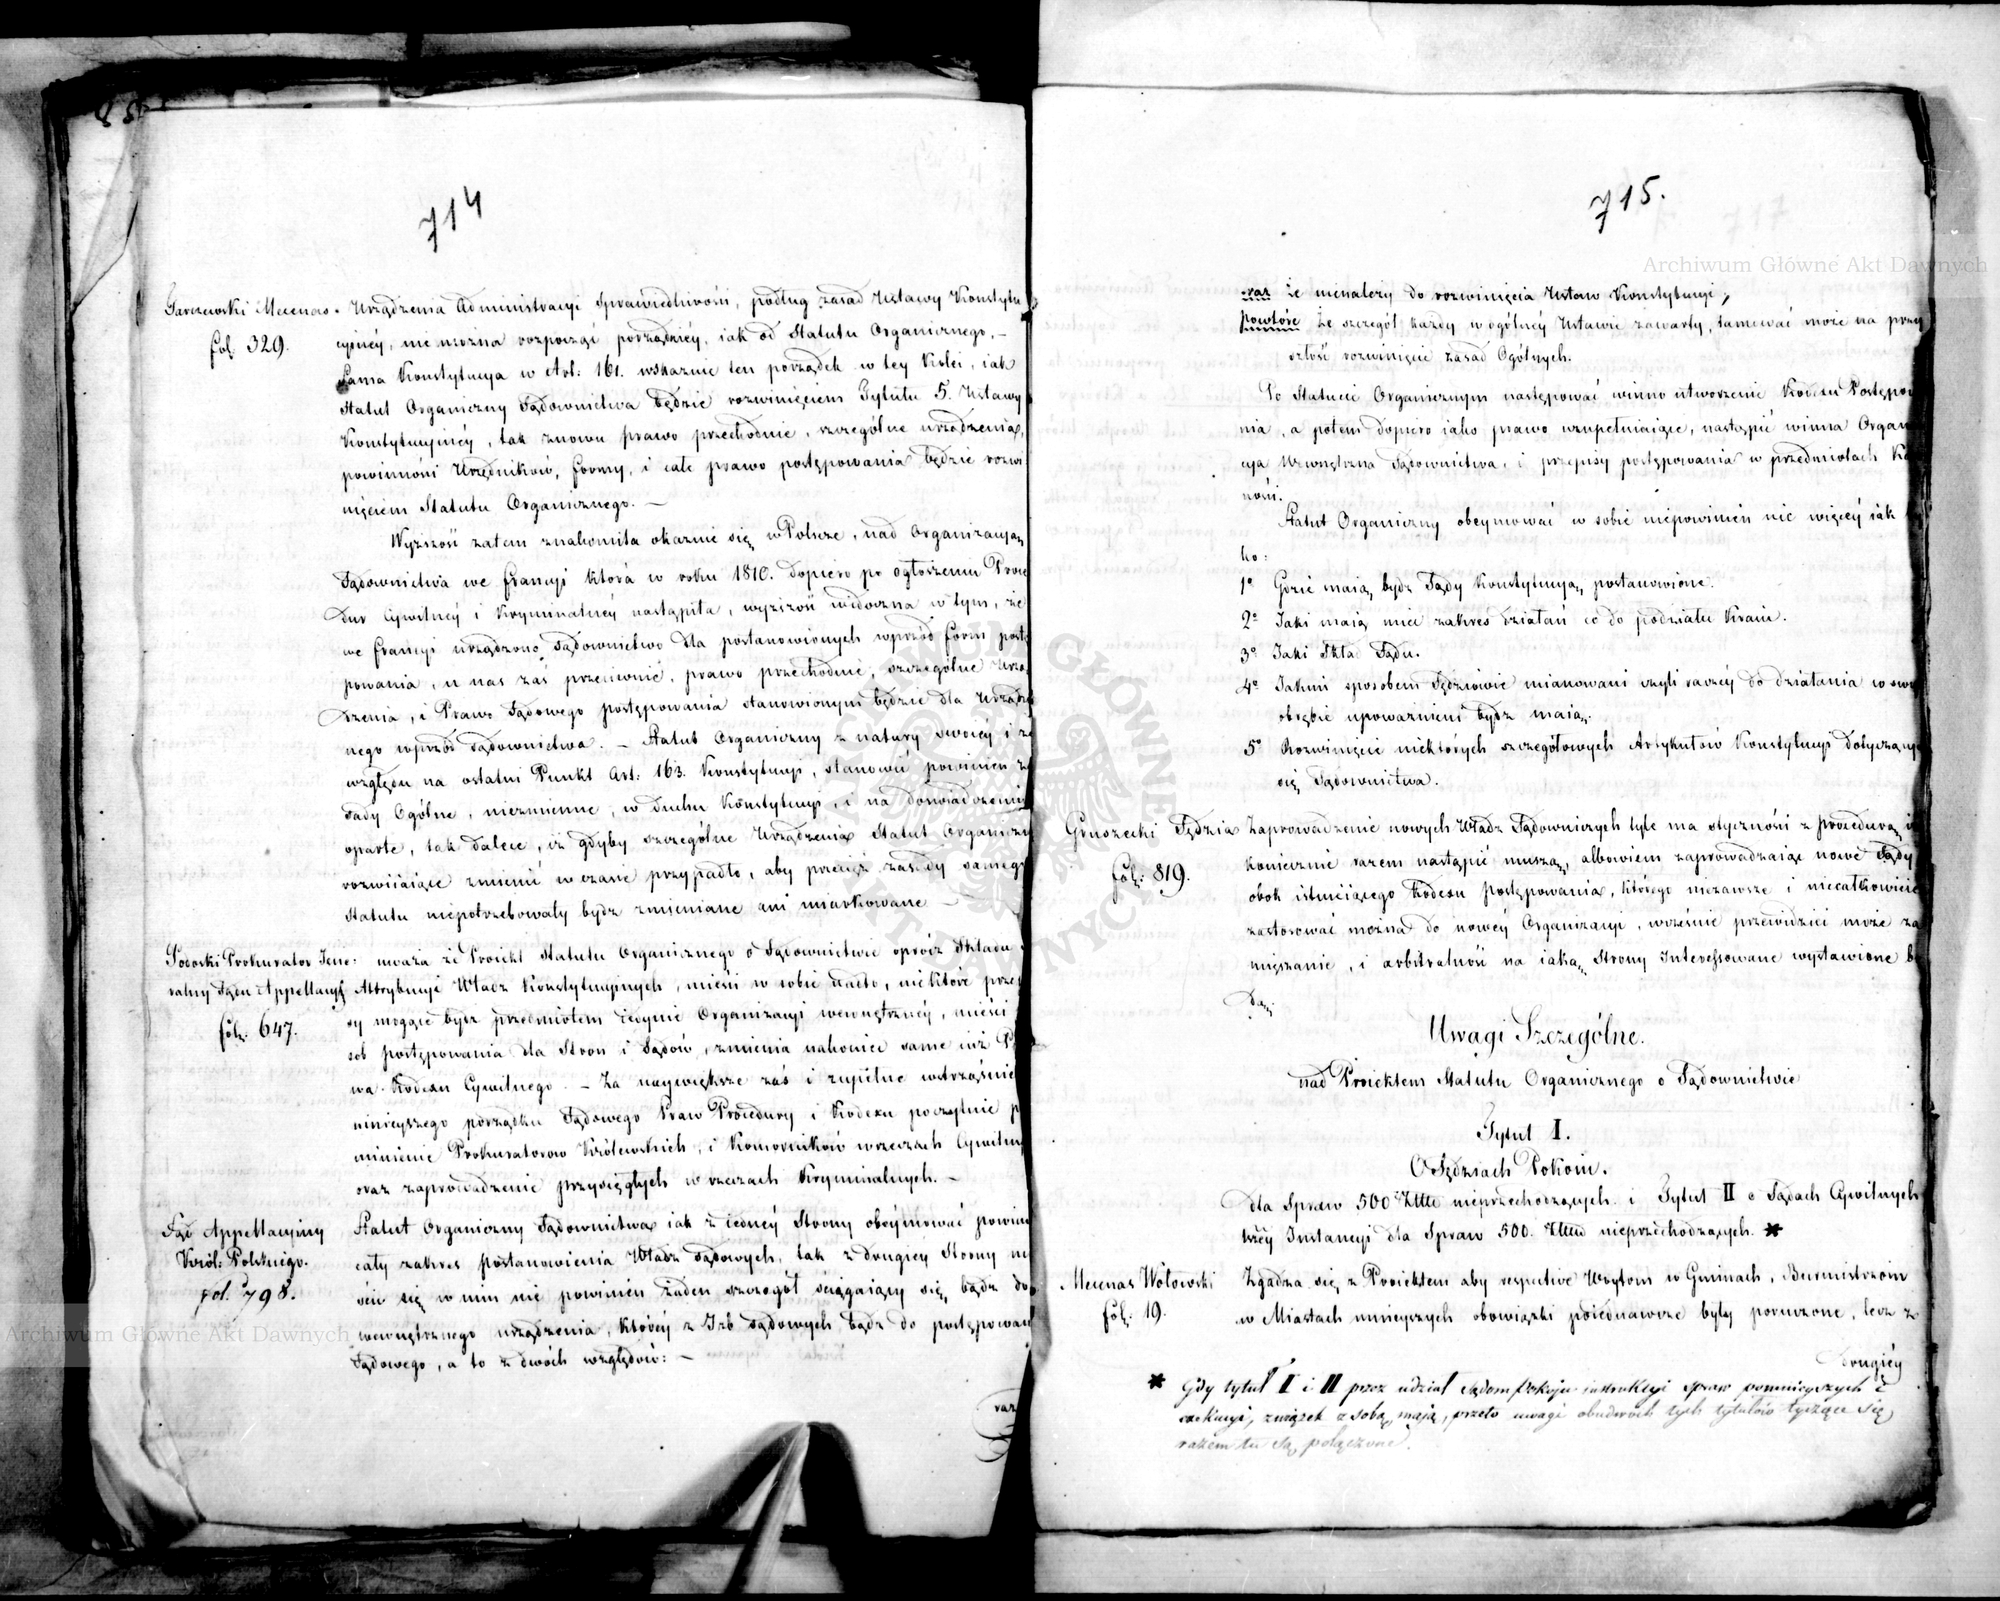 714
Garczewski Mecenas. Urządzenia Administracyi Sprawiedliwości, podług zasad Ustawy Konstytu
fol. 329. cyinéy, nie można rozpocząć porządniéy, iak od Statutu Organicznego, –
Sama Konstytucya w Art: 161. wskazuie ten porządek w tey Kolei, iak
Statut Organiczny Sądownictwa będzie rozwinięciem Tytułu 5. Ustawy
Konstytucyinéy, tak znowu prawo przechodnie, szczególne urządzenia,
powinności Urzędników, formy, i całe prawo postępowania będzie rozwi
nięciem Statutu Organicznego. –
Wyższość zatem znakomita okazuie się w Polsce, nad Organizacyą
Sądownictwa we Francyi która w roku 1810. dopiero po ogłoszeniu Proce
dur Cywilnéy i Kryminalnéy nastąpiła, wyższość widoczna w tym, że
we Francyi urządzono Sądownictwo dla postanowionych wprzód form postę
powania, u nas zaś przeciwnie, prawo przechodnie, szczególne Urzą
dzenia, i Prawo Sądowego postępowania stanowionym będzie dla Urządzo
nego wprzód Sądownictwa. – Statut Organiczny z natury swoiéy i ze
względu na ostatni Punkt Art: 163. Konstytucyi, stanowić powinien za
sady Ogólne, niezmienne, w duchu Konstytucyi, i na doświadczeniu
oparte, tak dalece, iż gdyby szczególne Urządzenia Statut Organiczny
rozwiiaiące zmienić w czasie przypadło, aby przecież zasady samego
Statutu niepotrzebowały bydź zmieniane ani miarkowane –
Prokurator Jene: uważa że Proiekt Statutu Organicznego o Sądownictwie oprócz Składu
ralny Sądu Appellacyi Attrybucyi Władz Konstytucyinych, mieści w sobie nadto, niektóre prze
fol. 647. sy mogące bydź przedmiotem iedynie Organizacyi wewnętrznéy, mieści
sob postępowania dla Stron i Sądów, zmienia nakoniec same iuż
wa Kodexu Cywilnego. – Za naywiększe zaś i zupełne wstrząśnie
ninieyszego porządku Sądowego Praw Procedury i Kodexu poczytuie
minienie Prokuratorów Królewskich, i Komorników w rzeczach Cywiln
oraz zaprowadzenie przysięgłych w rzeczach Kryminalnych. –
Sąd Appellacyiny Statut Organiczny Sądownictwa iak z iednéy Strony obeymować powin
Król: Polskiego. cały zakres postanowienia Władz Sądowych, tak z drugiey Strony
fol. 798. ścić się w nim nie powinien żaden szczegół ściągaiący się bądź do
wewnętrznego urządzenia, któréy z Izb Sądowych bądź do postępowan
Sądowego, a to z dwóch względów: –
raz
715.
raz że nienależy do rozwinięcia Ustaw Konstytucyi,
powtóre że szczegół każdy w ogólnéy Ustawie zawarty, tamować może na przy
szłość rozwinięcie zasad Ogólnych.
Po Statucie Organicznym następować winno utworzenie Kodexu Postępo
nia, a potem dopiero iako prawo uzupełniaiące, nastąpić winna Organ
cya Wewnętrzna Sądownictwa, i przepisy postępowania w przedmiotach
ności.
Statut Organiczny obeymować w sobie niepowinien nic więcéy iak
ko:
1º Gdzie maią bydź Sądy Konstytucyą postanowione.
2º Jaki maią mieć zakres działań co do podziału Kraiu.
3º Jaki Skład Sądu.
4º Jakim sposobem Sędziowie mianowani czyli raczéy do działania w swo
obrębie upoważnieni bydź maią.
5º Rozwinięcie niektórych szczegółowych Artykułów Konstytucyi dotycząc
się Sądownictwa.
Gruszecki Sędzia Zaprowadzenie nowych Władz Sądowniczych tyle ma styczności z procedurą iż
fol: 819. koniecznie razem nastąpić muszą, albowiem zaprowadzaiąc nowe Sądy
obok istnieiącego Kodexu postępowania, którego niezawsze i niecałkowicie
zastosować można do nowéy Organizacyi, wcześnie przewidzieć może za
mięszanie, i arbitralność na iaką Strony Interessowane wystawione bę
dą.
Uwagi Szczególne.
nad Proiektem Statutu Organicznego o Sądownictwie
Tytuł I.
O Sędziach Pokoiu.
dla Spraw 500 Złłł nieprzechodzących. i Tytuł II o Sądach Cywilnych
Instancyi dla Spraw 500. Złłł nieprzechodzących. *
Mecenas Wołowski Zgadza się z Proiektem aby respective Woytom w Gminach, Burmistrzom
fol: 19. w Miastach mnieyszych obowiązki poiednawcze były poruczone, lecz z
drugiéy
* Gdy tytuł I i II przez udział Sądom Pokoju instrukcyi spraw pomnieyszych i
exekucyi, związek z sobą mają, przeto uwagi obudwóch tych tytułów tyczące się,
razem tu są połączone.
Archiwum Główne Akt Dawnych
Archiwum Główne Akt Dawnych